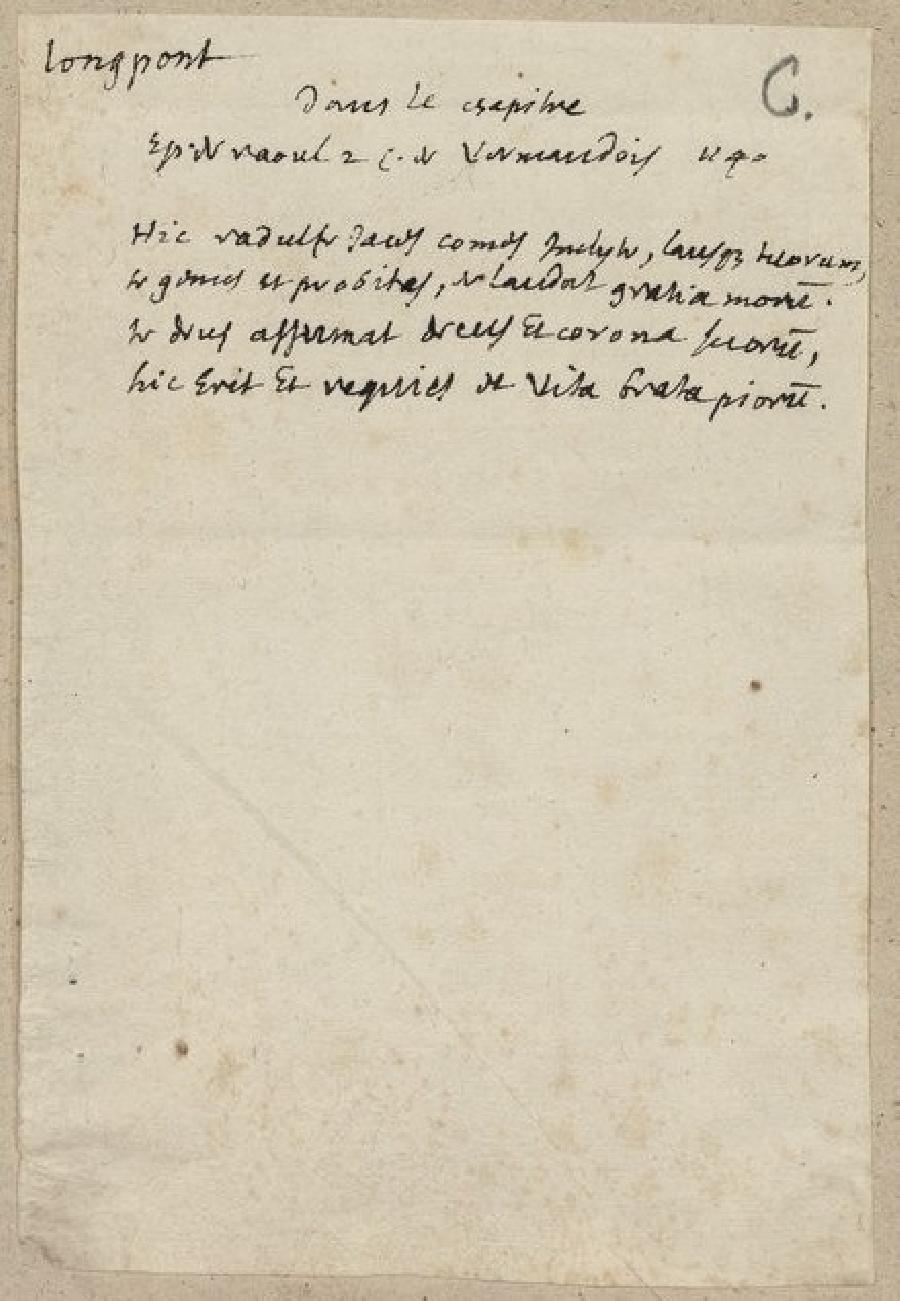 longpont
C.
Dans le chapitre
Ep. de raoul 2 c. de Vermandois 1190
Hic radulfe Jaces comes Inclyte, lausq3 tuorum,
te genus et probitas, te laudat gratia morū.
te decus affirmat decus Et corona suorū,
hic Erit Et requies et Vita beata piorū.